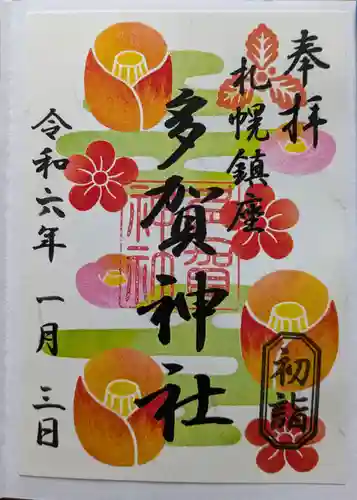 奉拝
札幌鎮座
多賀神社
多賀
神社
令和六年 一月 三日
初詣